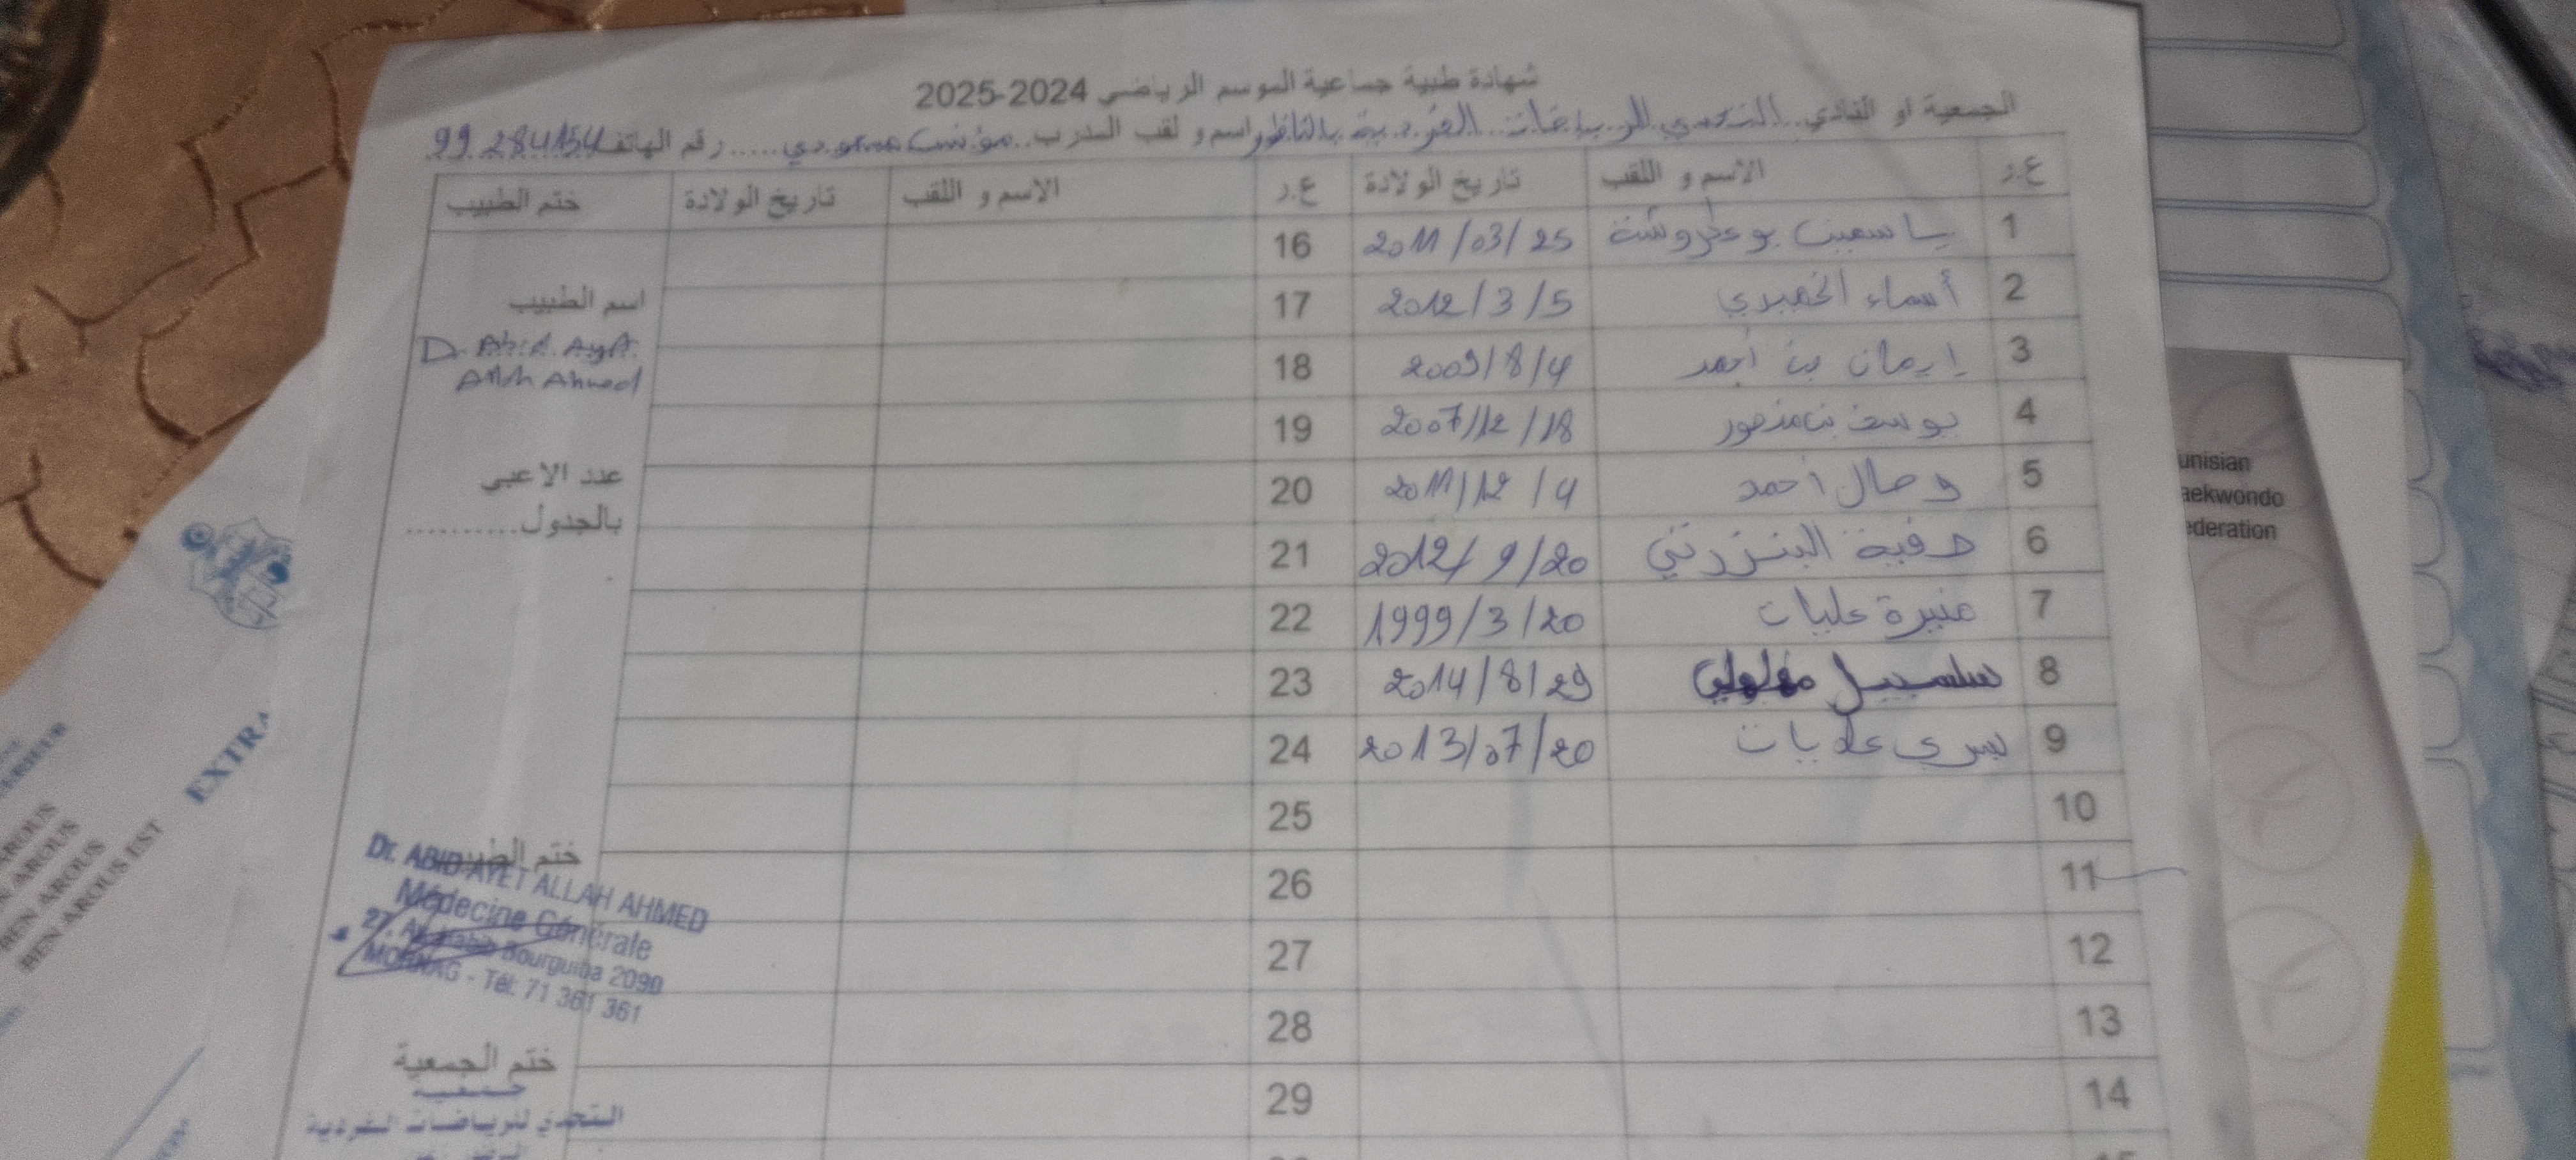 شهادة طبية جماعية الموسم الرياضي 2024-2025
الجمعية او النادي التحدي للرياضات الفردية بالناظور اسم و لقب المدرب مؤنس مسعودي رقم الهاتف 99 284154
ع.ر الاسم و اللقب تاريخ الولادة ع.ر الاسم و اللقب تاريخ الولادة ختم الطبيب
1 ياسمين بو عطروشة 2011/03/25 16
2 أسماء 2012/3/5 17
3 إيمان بن أحمد 2009/8/4 18
4 يوسف بن منصور 2007/12/18 19
5 وصال أحمد 2011/12/4 20
6 صفية البنزرتي 2012/9/20 21
7 منيرة عليات 1999/3/20 22
8 سلسبيل 2014/8/29 23
9 يسرى 2013/07/20 24
10 25
11 26
12 27
13 28
14 29
15
اسم الطبيب
Dr Abid Ayet
Allah Ahmed
عدد الاعبي
بالجدول..........
ختم الطبيب
Dr. ABID AYET ALLAH AHMED
Médecine Générale
27, Av. Habib Bourguiba 2090
MORNAG - Tél: 71 361 361
ختم الجمعية
جمعية
التحدي للرياضات الفردية
unisian
aekwondo
ederation
EXTRA
ERIEUR
AROUS
N AROUS
BEN AROUS
BEN AROUS EST